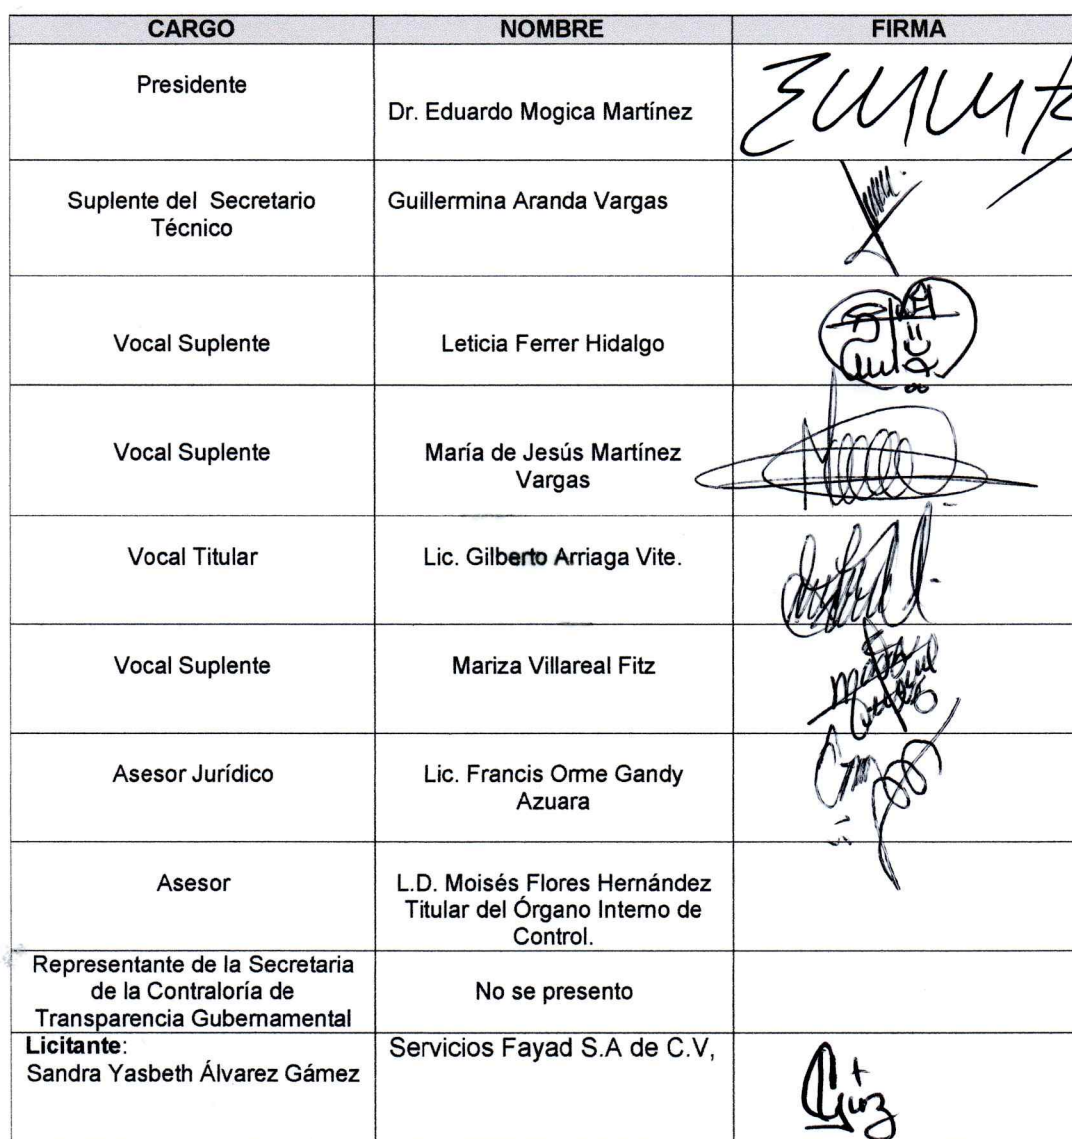 CARGO NOMBRE FIRMA
Presidente
Dr. Eduardo Mogica Martínez
Suplente del Secretario Guillermina Aranda Vargas
Técnico
Vocal Suplente Leticia Ferrer Hidalgo
Vocal Suplente María de Jesús Martínez
Vargas
Vocal Titular Lic. Gilberto Arriaga Vite.
Vocal Suplente Mariza Villareal Fitz
Asesor Jurídico Lic. Francis Orme Gandy
Azuara
Asesor L.D. Moisés Flores Hernández
Titular del Órgano Interno de
Control.
Representante de la Secretaria
de la Contraloría de
Transparencia Gubernamental
No se presento
Licitante: Servicios Fayad S.A de C.V,
Sandra Yasbeth Álvarez Gámez